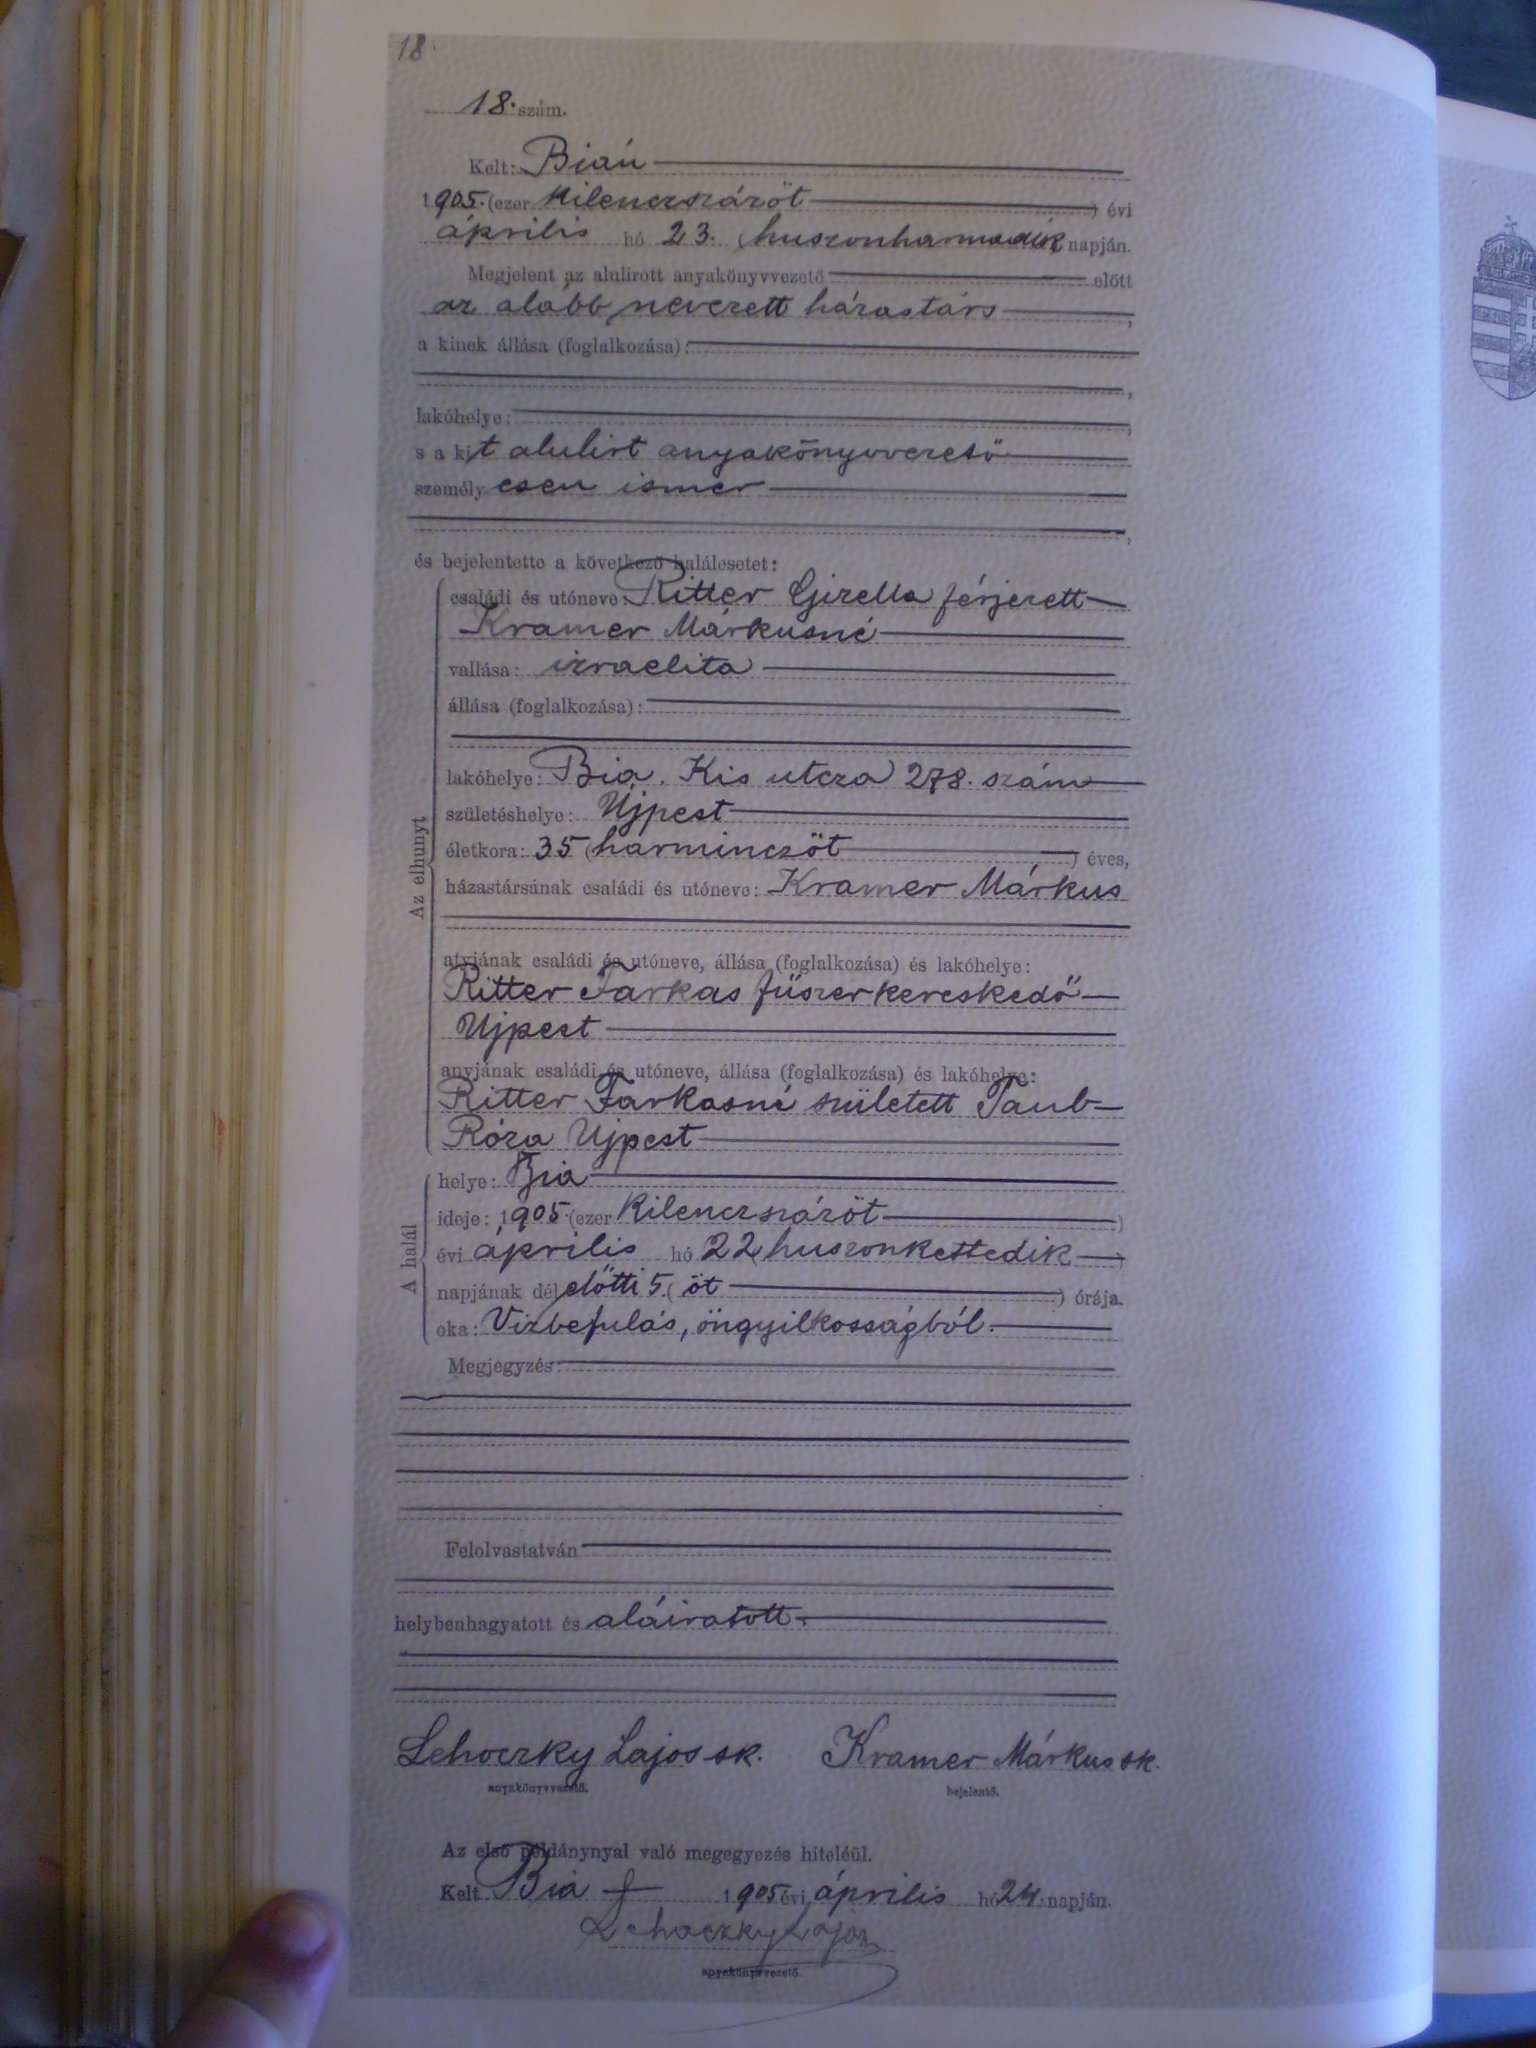 18.
18. szám.
Kelt: Bián
1905. (ezer kilenczszázöt) évi
április hó 23. (huszonharmadik napján.
Megjelent az alulirott anyakönyvvezető előtt
az alább nevezett házastárs,
a kinek állása (foglalkozása):
lakóhelye:
s a kit alulirt anyakönyvvezető
személyesen ismer
és bejelentette a következő halálesetet:
Az elhunyt
családi és utóneve: Ritter Gizella férjezett
Kramer Márkusné
vallása: izraelita
állása (foglalkozása):
lakóhelye: Bia. Kis utcza 278. szám
születéshelye: Ujpest
életkora: 35 (harminczöt) éves,
házastársának családi és utóneve: Kramer Márkus
atyjának családi és utóneve, állása (foglalkozása) és lakóhelye:
Ritter Farkas fűszerkereskedő
Ujpest
anyjának családi és utóneve, állása (foglalkozása) és lakóhelye:
Ritter Farkasné született Taub
Róza Ujpest
A halál
helye: Bia
ideje: 1905. (ezer kilenczszázöt)
évi április hó 22 (huszonkettedik)
napjának délelőtti 5. (öt) órája.
oka: Vizbefulás, öngyilkosságból.
Megjegyzés:
Felolvastatván
helybenhagyatott és aláiratott.
Lehoczky Lajos sk. Kramer Márkus sk.
anyakönyvvezető. bejelentő.
Az első példánynyal való megegyezés hiteléül.
Kelt Bia 1905 évi április hó 24. napján.
Lehoczky Lajos
anyakönyvvezető.